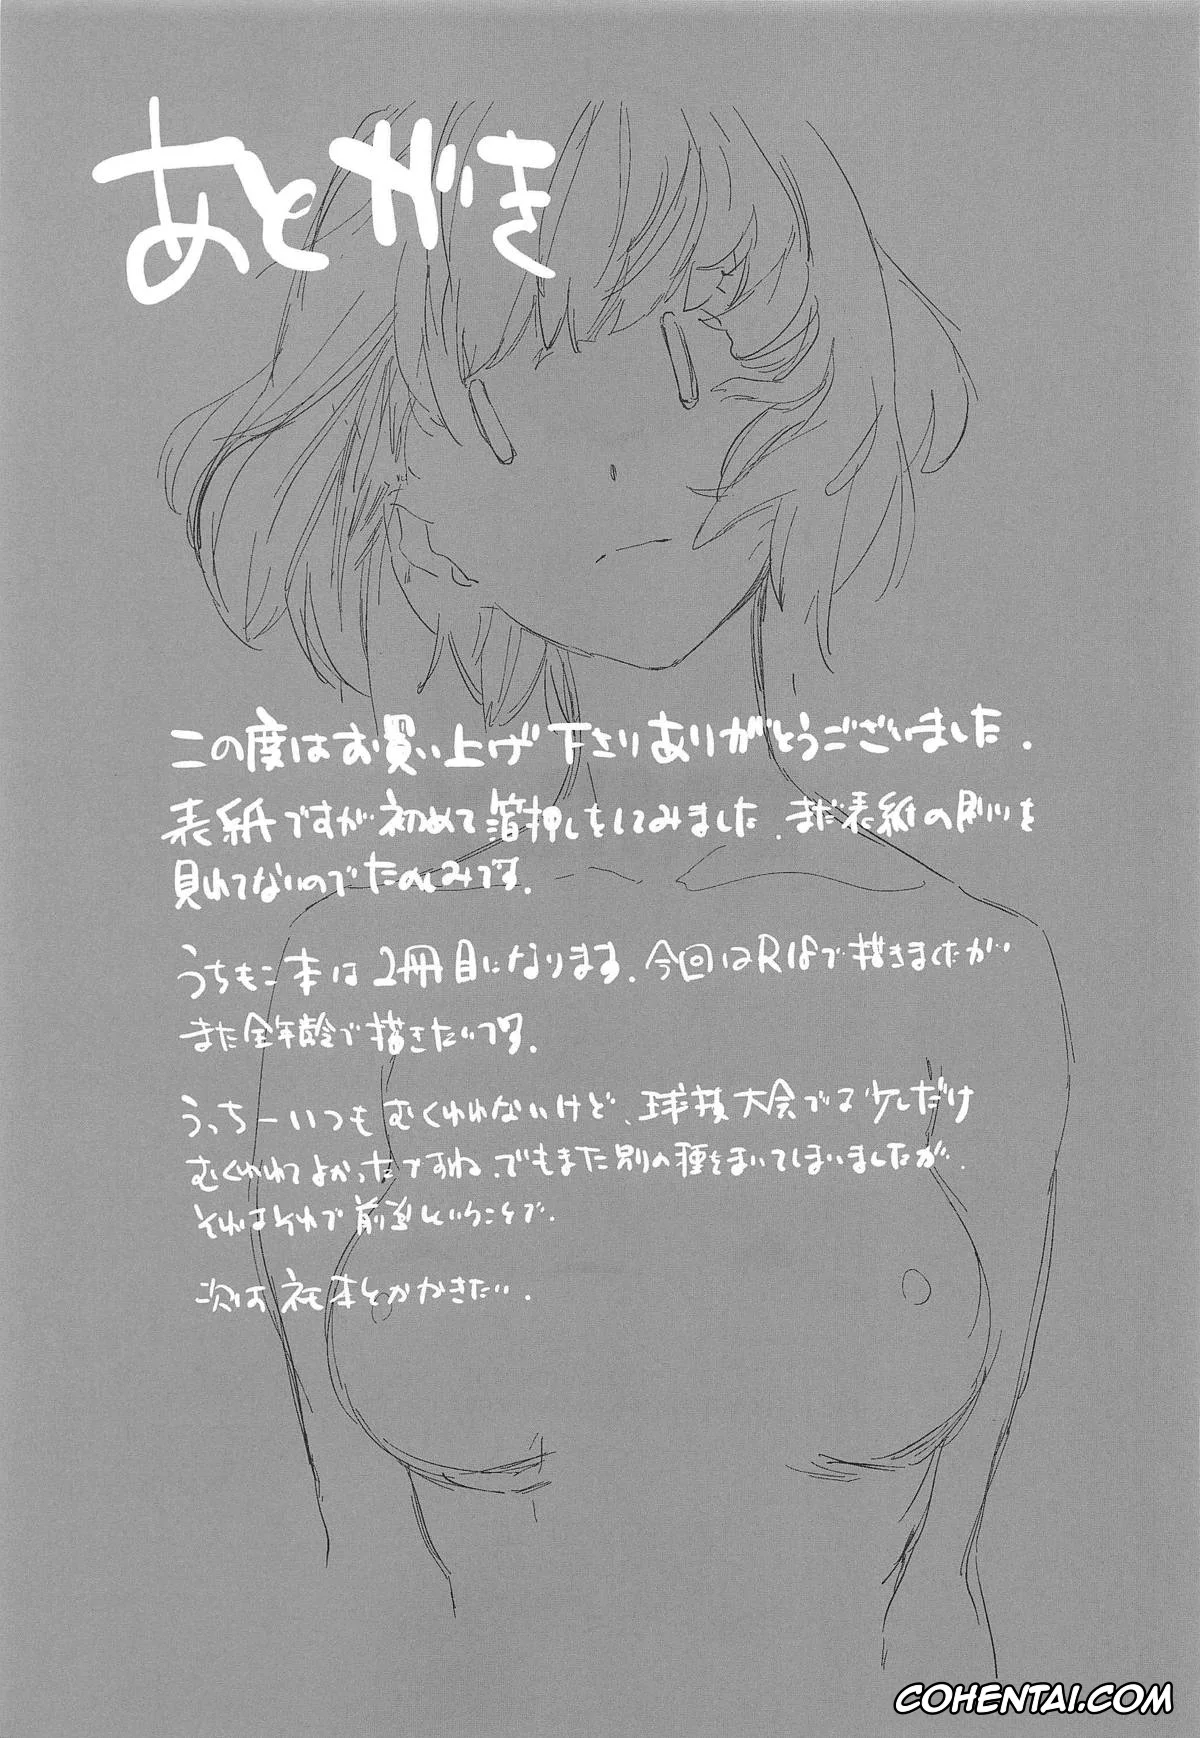 あとがき
この度はお買い上げ下さりありがとうございました.
表紙ですが初めて箔押しをしてみました.まだ表紙の刷りを
見れてないのでたのしみです.
うちもこ本は2冊目になります.今回はR18で描きましたが
また全年齢で描きたいです.
うっちーいつもむくわれないけど、球技大会でる少しだけ
むくわれてよかったですね.でもまた別の種をまいてしまいましたが.
それはそれで前進ということで.
次はネモ本とかかきたい.
COHENTAI.COM